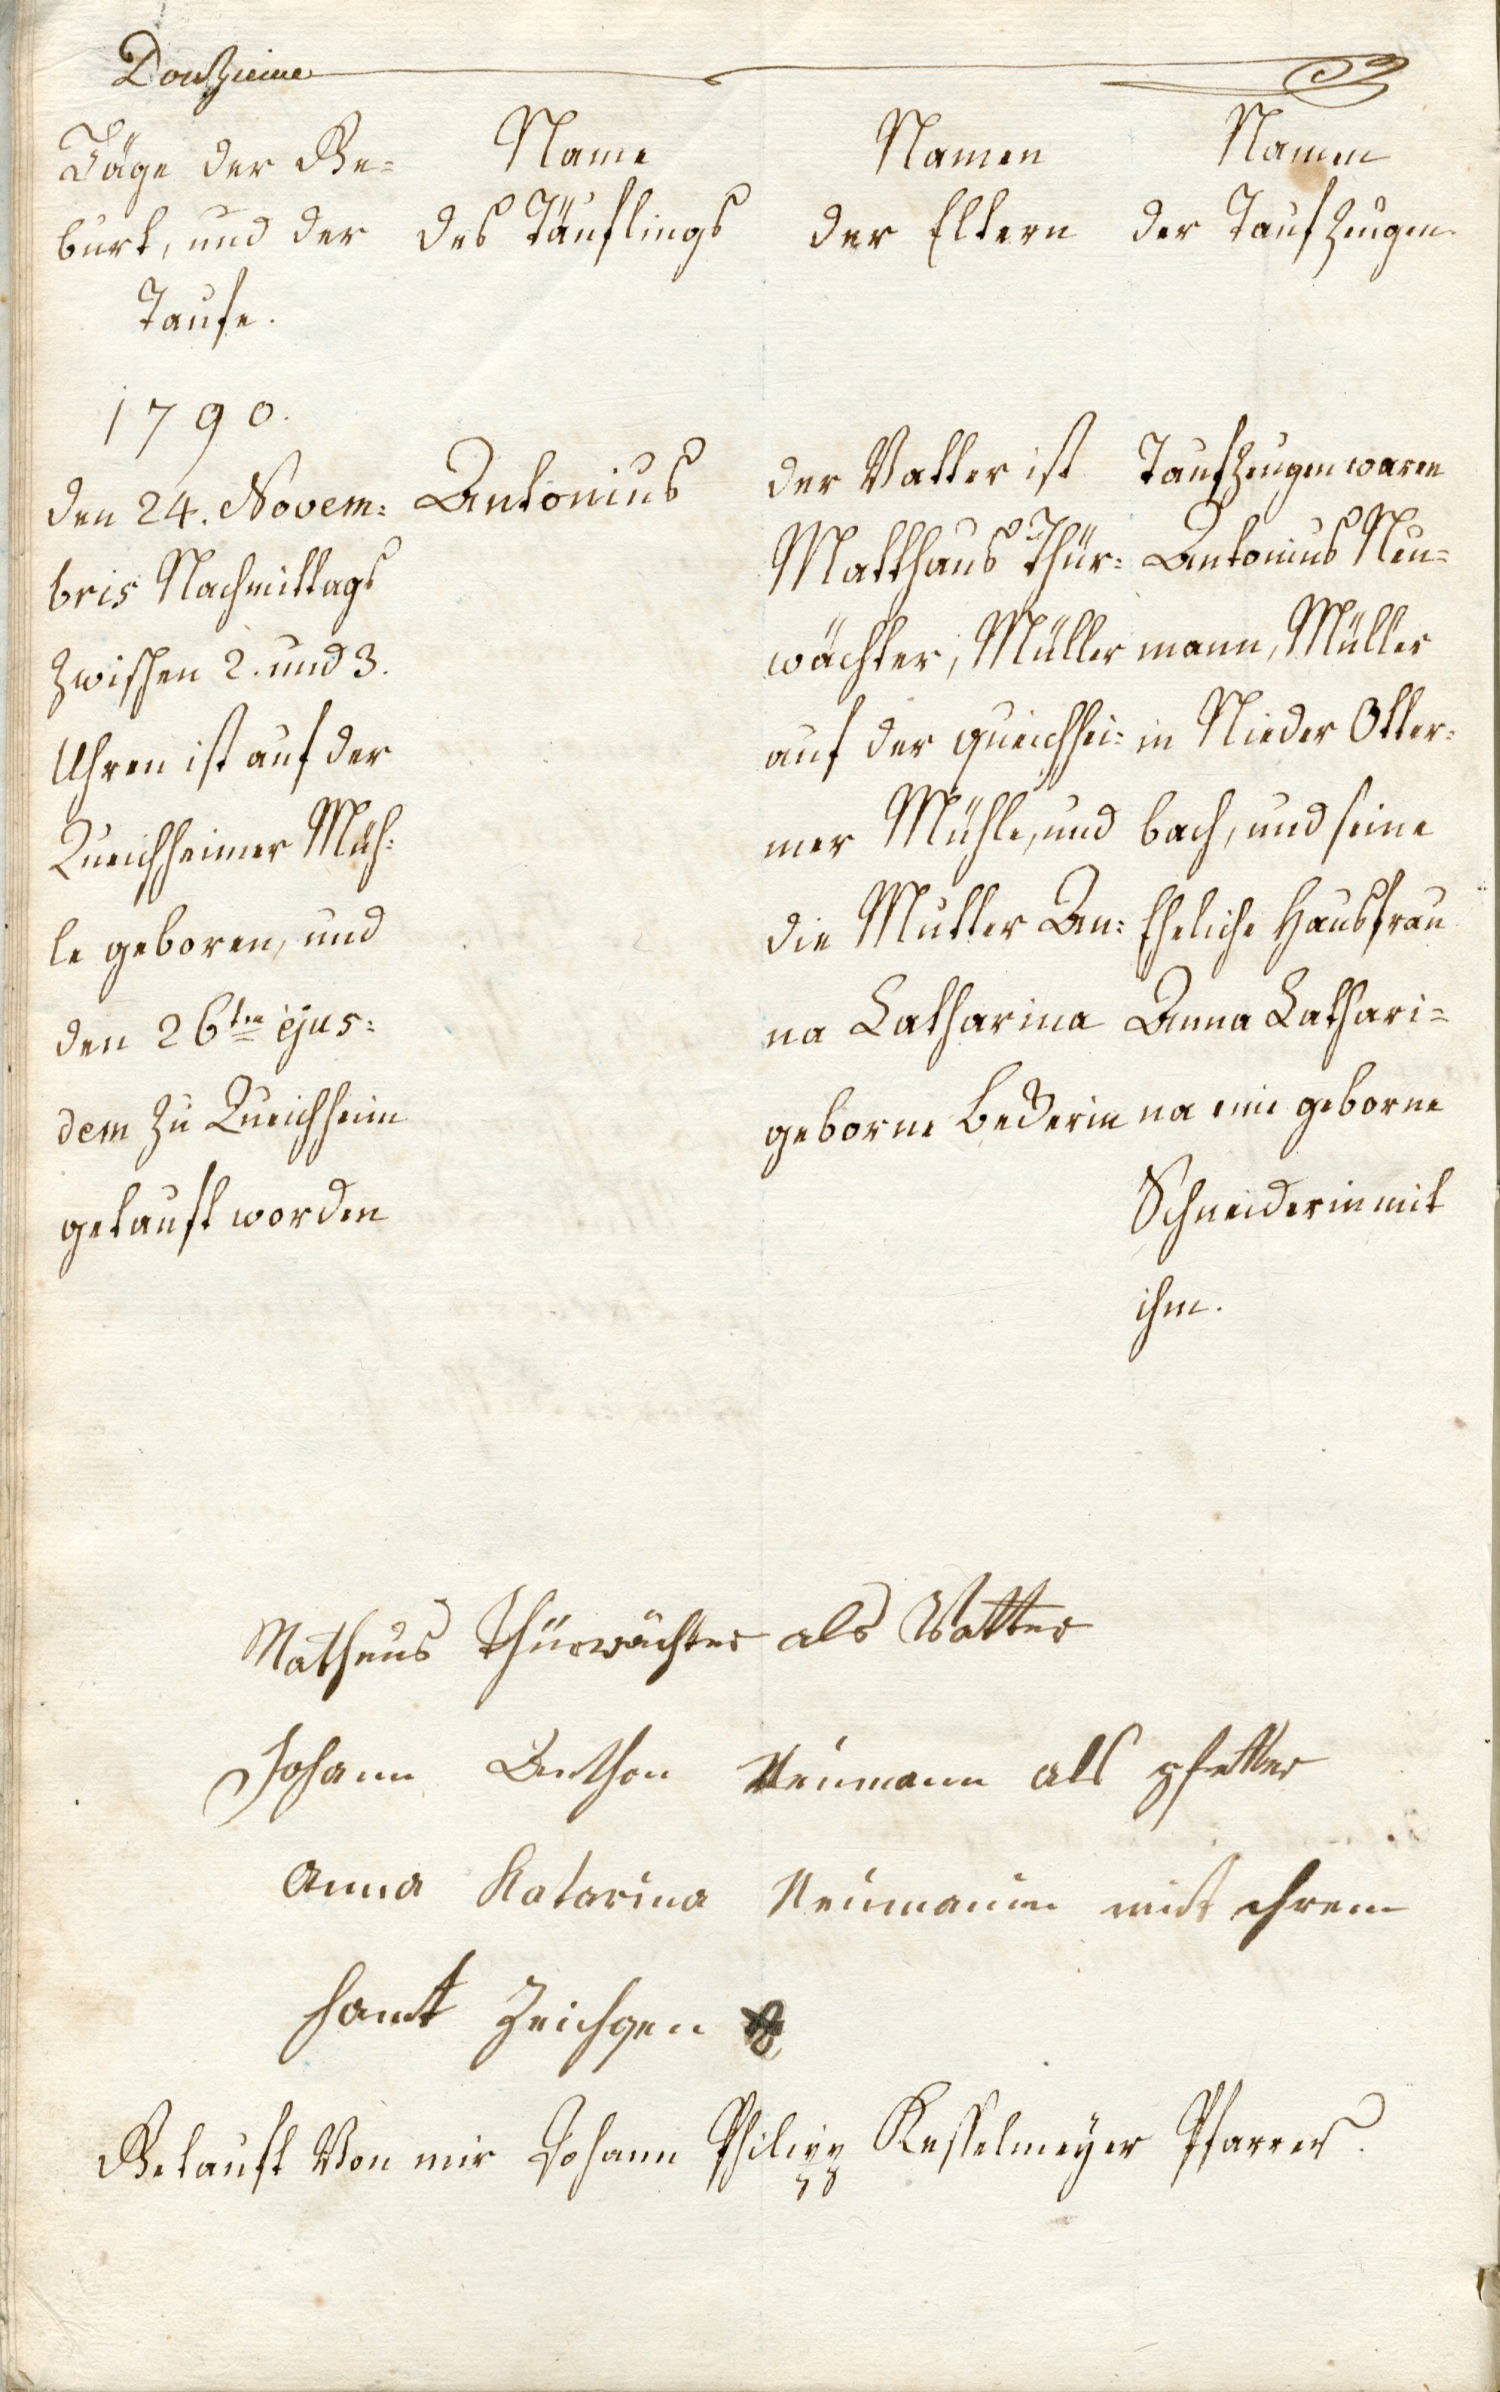 Douzieme
Täge der Ge=
burt, und der
Taufe.
Name
des Täuflings
Namen
der Eltern
Namen
der Taufzeugen
1790.
den 24. Novem:
bris Nachmittags
zwischen 2. und 3.
Uhren ist auf der
Queichheimer Müh:
le geboren, und
den 26ten ejus:
dem zu Queichheim
getauft worden
Antonius
der Vatter ist
Matthäus Thür:
wächter, Müller
auf der queichhei:
mer Mühle, und
die Mutter An:
na Catharina
geborne Bederin
Taufzeugen waren
Antonius Neu=
mann, Müller
in Nieder Otter:
bach, und seine
Eheliche Hausfrau
Anna Cathari=
na eine geborne
Schneiderin mit
ihm.
Matheus Thürwächter als Vatter
Johann Anthon Neumann als pfetter
Anna Katarina Neumanin mit ihrem
hant Zeichgen
Getauft Von mir Johann Philipp Kesselmeyer Pfarrer.
78